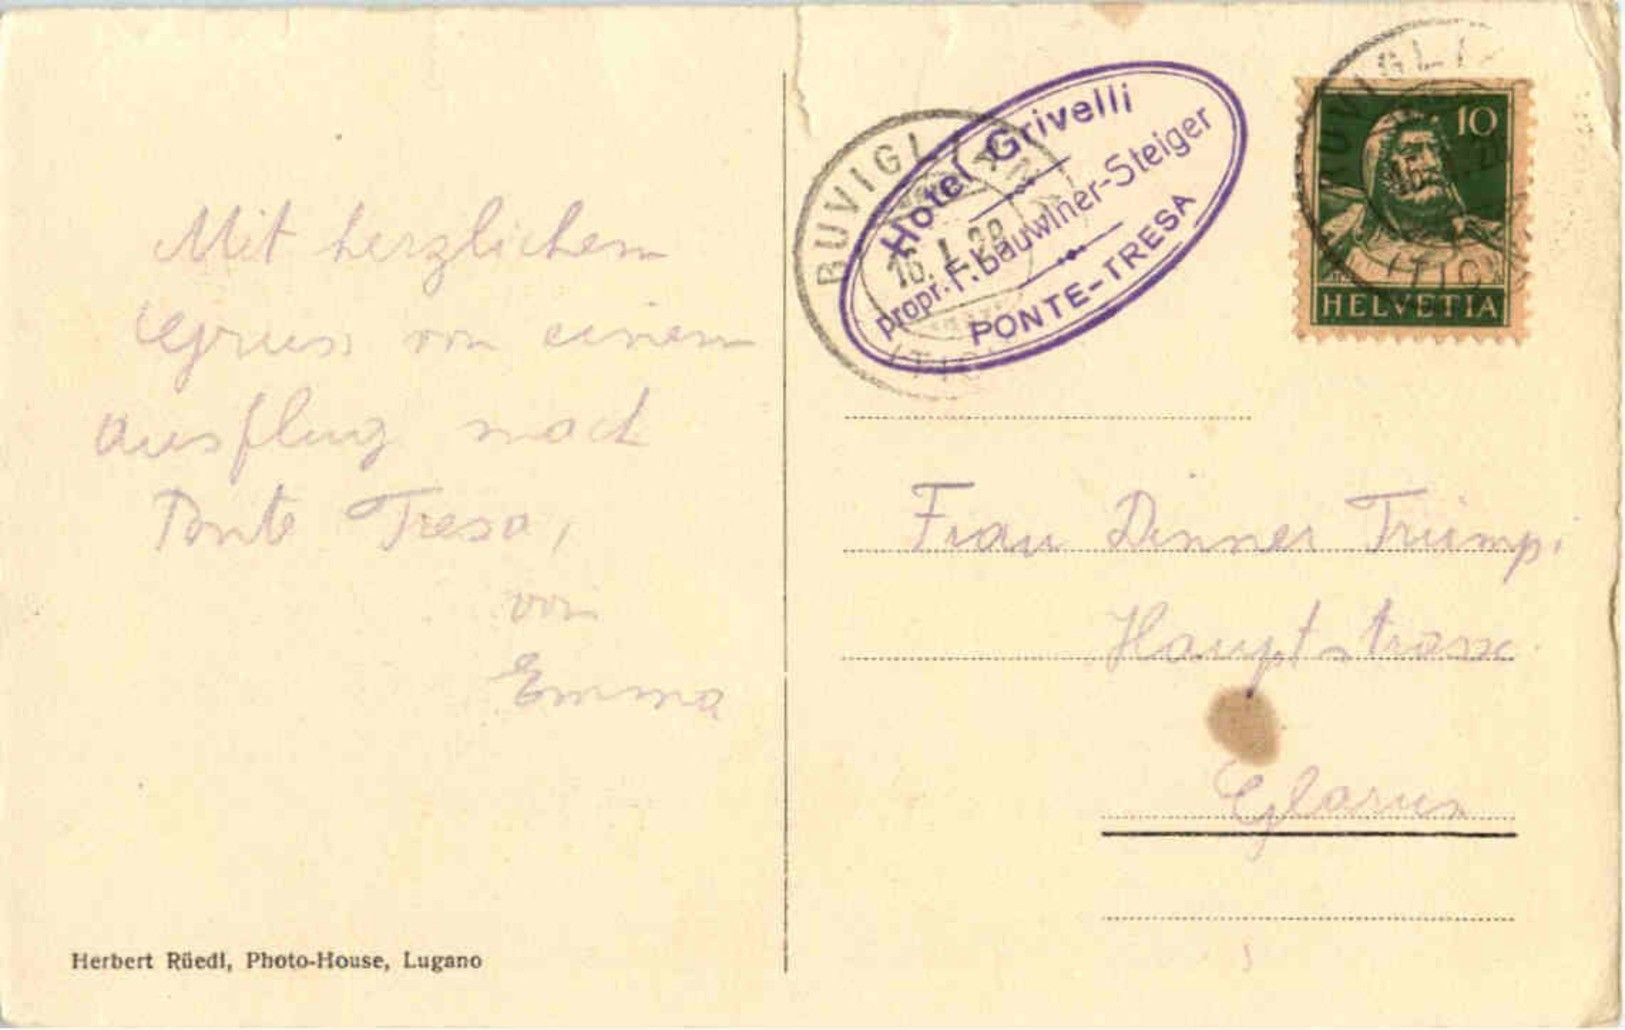 Mit herzlichem
Gruss von einem
Ausflug nach
Ponte Tresa,
von
Emma
Herbert Rüedi, Photo-House, Lugano
BUVIGLIANA
16. I. 28
(TICINO)
Hotel Grivelli
propr. F. Dauwlner-Steiger
PONTE-TRESA
10
HELVETIA
Frau Dinner Trümp.
Hauptstrasse
Glarus